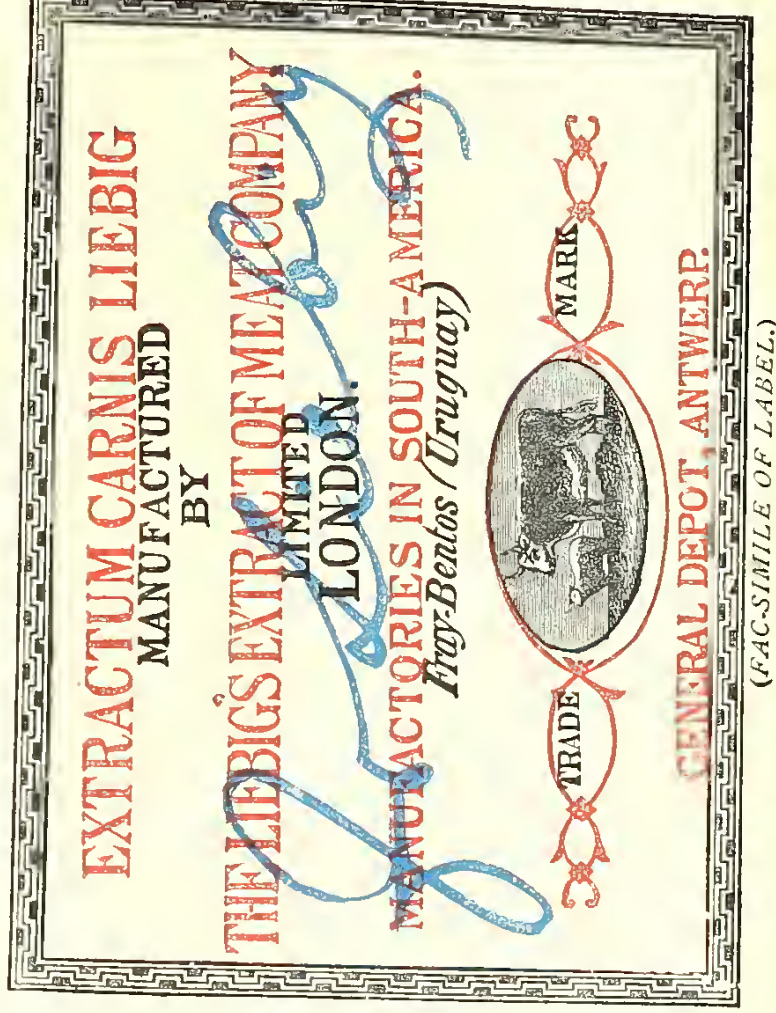 EXTRACTUM CARNIS LIEBIG
MANUFACTURED
BY
THE LIEBIG'S EXTRACT OF MEAT COMPANY
LIMITED
LONDON.
MANUFACTORIES IN SOUTH-AMERICA.
Fray-Bentos (Uruguay)
TRADE MARK
GENERAL DEPOT, ANTWERP.
(FAC-SIMILE OF LABEL.)
J. v. Liebig